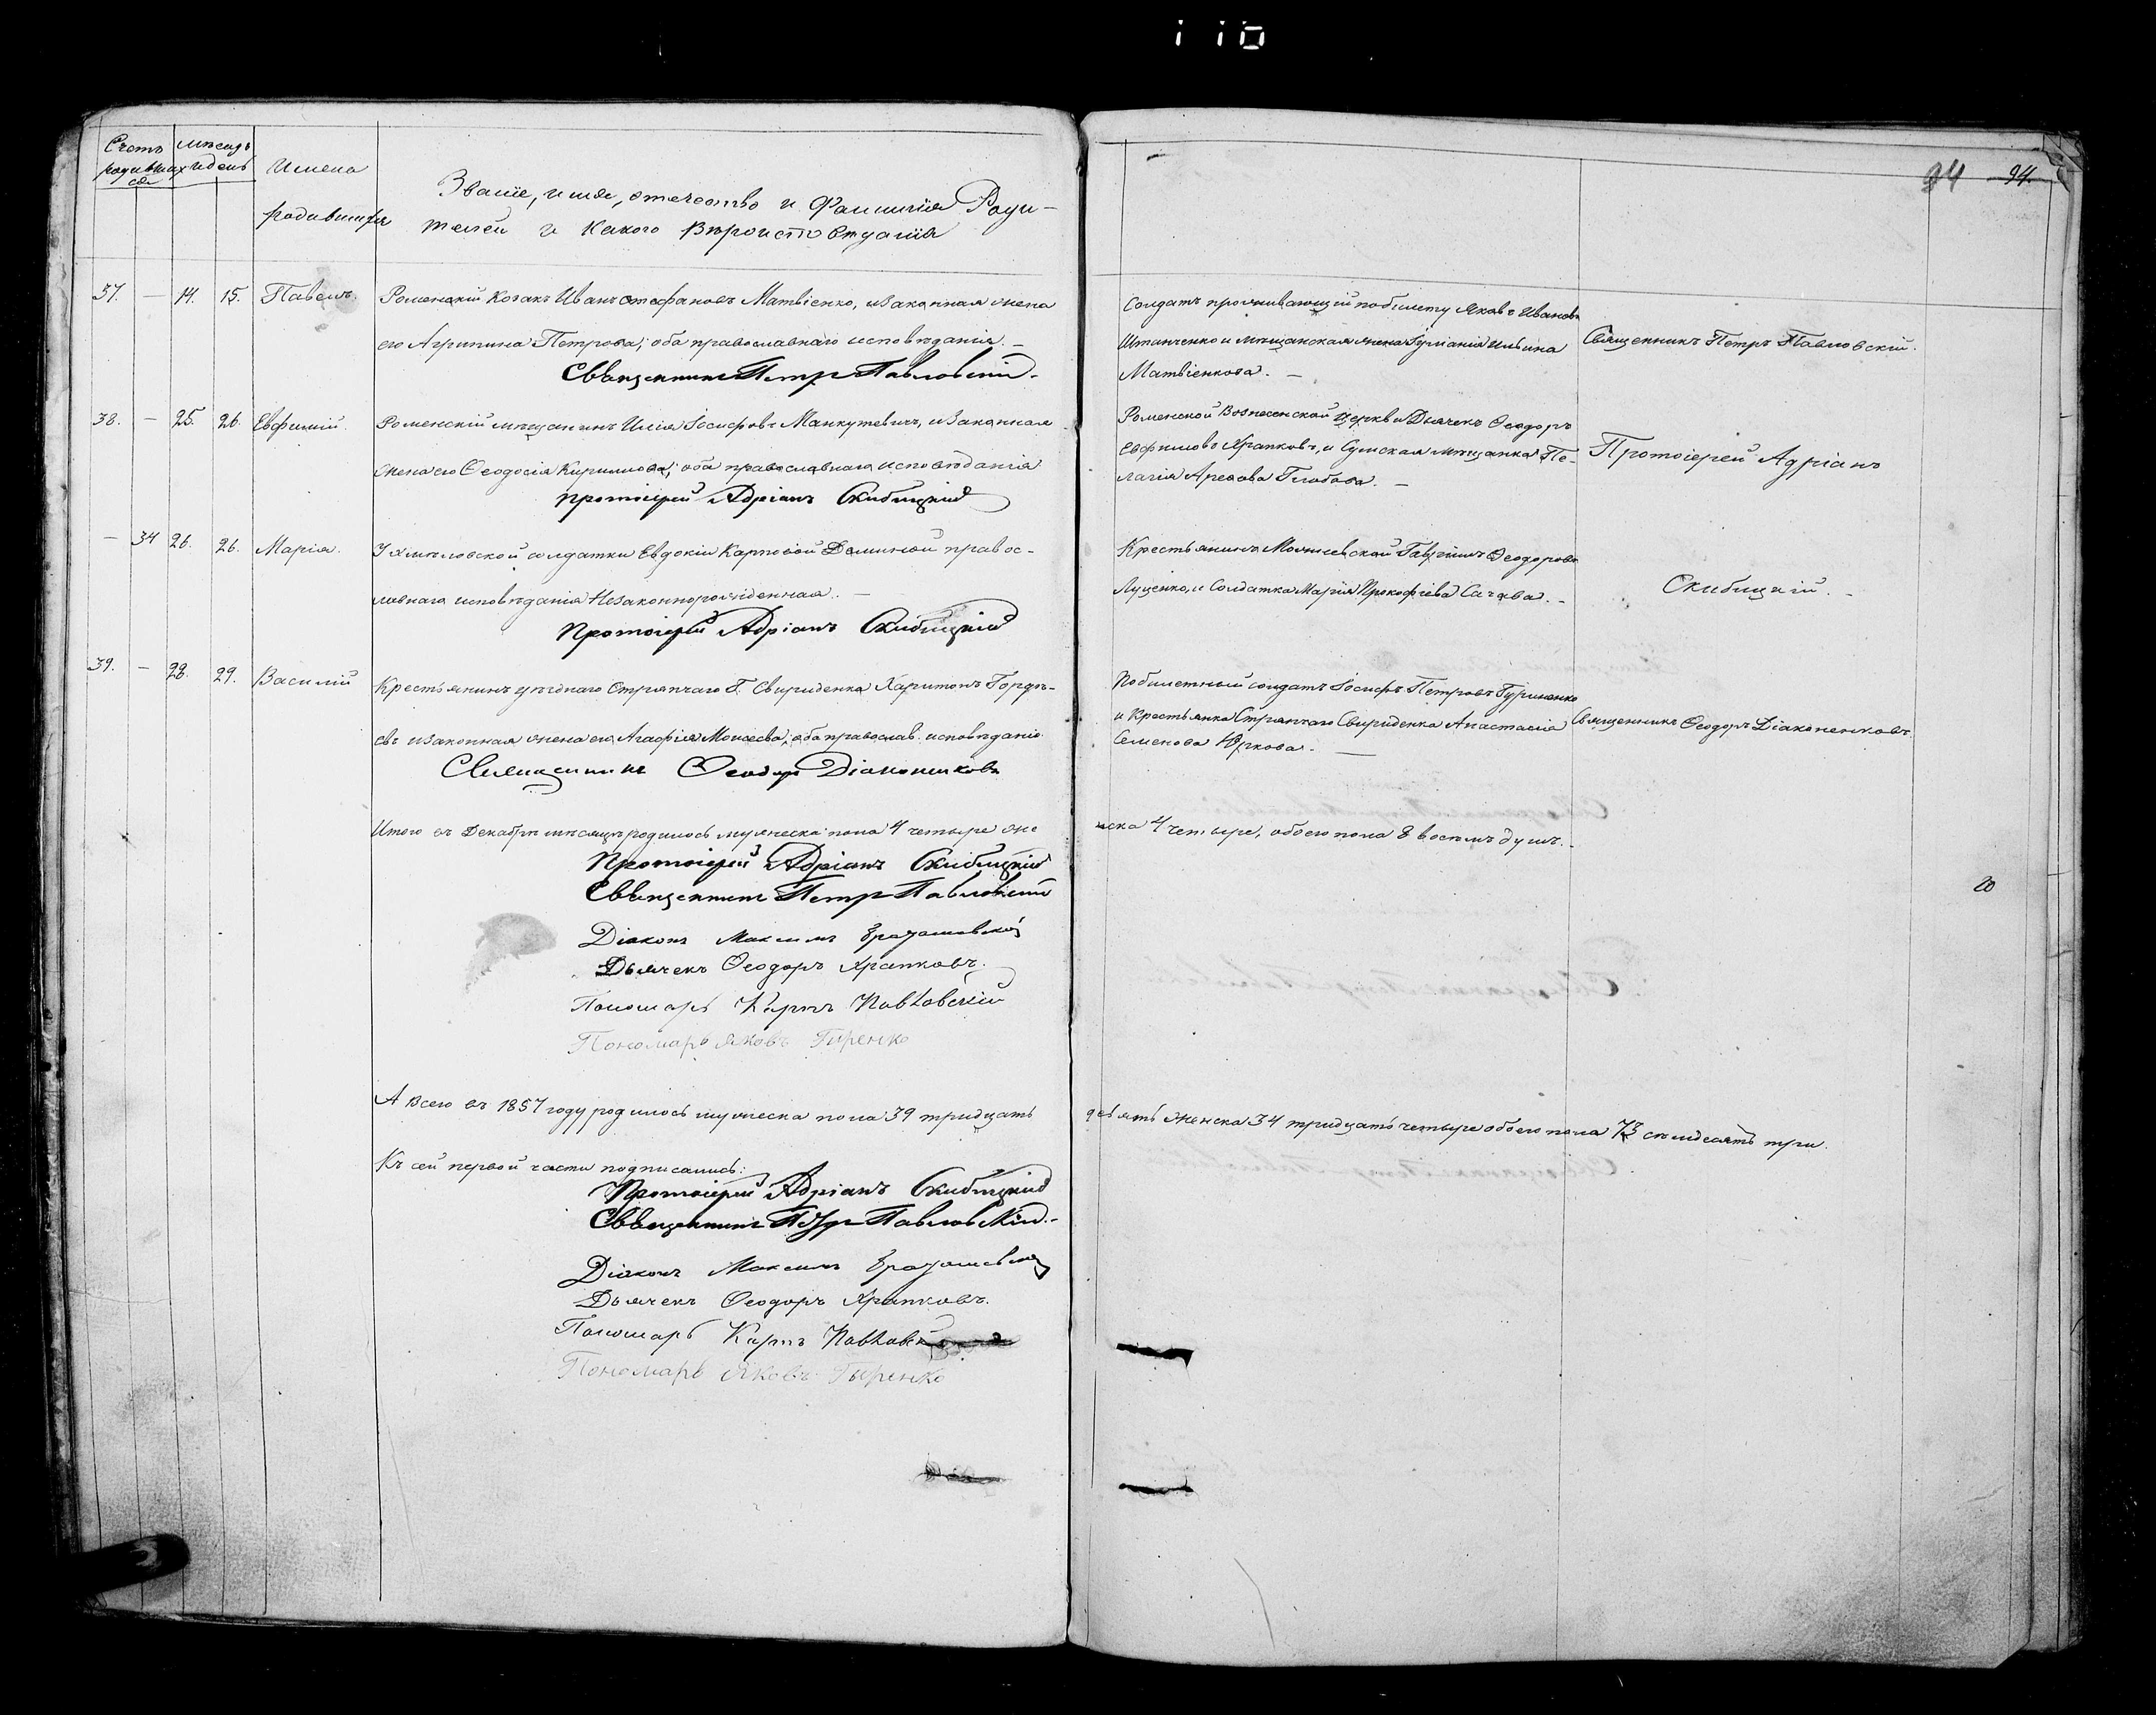 110
94 94.
Счетъ родившихся
мѣсяцъ и день
Имена родившихся
Званіе, имя, отечество и Фамилія Роди-
телей и какого вѣроисповѣданія
37. — 14. 15. Павелъ.
Роменскій козакъ Иванъ Стефановъ Матвіенко, и законная жена
его Агрипина Петрова; оба православнаго исповѣданія. —
Священникъ Петръ Павловскій.
Солдатъ проживающій по билету Яковъ Ивановъ
Штанченко и мѣщанская жена Іуліанія Ильина
Матвіенкова. —
Священникъ Петръ Павловскій.
38. — 25. 26. Евфимій.
Роменскій мѣщанинъ Илія Іосифовъ Манкутевичъ, и законная
жена его Ѳеодосія Кирилова; оба православнаго исповѣданія
Протоіерей Адріанъ Скибицкій
Роменской Вознесенской церкви Дьячекъ Ѳеодоръ
Евфимовъ Храпковъ, и Сумская мѣщанка Пе-
лагія Глобова. —
Протоіерей Адріанъ
— 34 26. 26. Марія.
У солдатки Евдокіи Карповой Деминой правос-
лавнаго исповѣданія незаконнорожденная. —
Протоіерей Адріанъ Скибицкій
Крестьянинъ Гавріилъ Ѳеодоровъ
Луценко, и Солдатка Марія Прокофіева Сачава. —
Скибицкій. —
39. — 28. 29. Василій
Крестьянинъ уѣзднаго Стряпчаго Г. Свириденка Харитонъ Гордѣ-
евъ и законная жена его Агафія Моисеева; оба православ. исповѣданія
Священникъ Ѳеодоръ Діаконенковъ
Побилетный солдатъ Іосифъ Петровъ Гуриненко
и Крестьянка Стряпчаго Свириденка Анастасія
Семенова Юркова. —
Священникъ Ѳеодоръ Діаконенковъ.
Итого въ Декабрѣ мѣсяцѣ родилось мужеска пола 4 четыре же
нска 4 четыре, обоего пола 8 восемь душъ. —
Протоіерей Адріанъ Скибицкій
Священникъ Петръ Павловскій
Діаконъ Максимъ
Дьячекъ Ѳеодоръ Храпковъ.
Пономарь Карпъ Павловскій
Пономарь Яковъ Гиренко
20
А всего въ 1857 году родилось мужеска пола 39 тридцать
девять женска 34 тридцать четыре обоего пола 73 семдесятъ три.
Къ сей первой части подписались:
Протоіерей Адріанъ Скибицкій
Священникъ Петръ Павловскій.
Діаконъ Максимъ
Дьячекъ Ѳеодоръ Храпковъ.
Пономарь Карпъ Павловскій
Пономарь Яковъ Гыренко